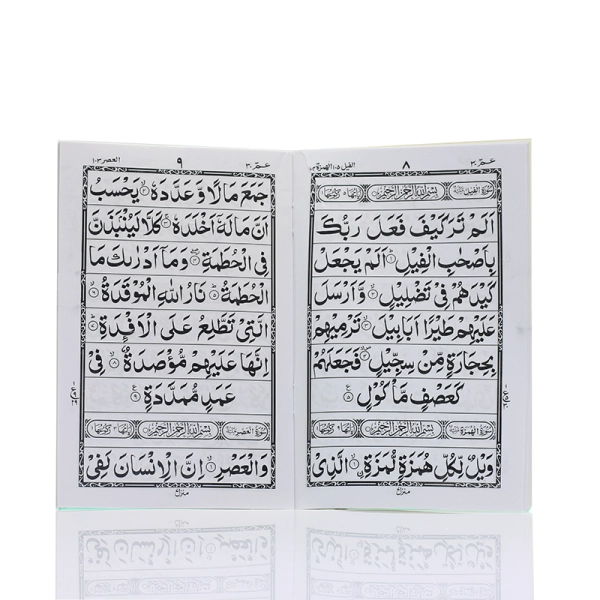 عمّ ٣٠ ٨ الفيل ١٠٥ الهمزة ١٠٤
سورة الفيل مكية بسم الله الرحمن الرحيم
اَلَمۡ تَرَ كَيۡفَ فَعَلَ رَبُّكَ
بِاَصۡحٰبِ الۡفِيۡلِ ۱ اَلَمۡ يَجۡعَلۡ
كَيۡدَهُمۡ فِىۡ تَضۡلِيۡلٍ ۲ وَّاَرۡسَلَ
عَلَيۡهِمۡ طَيۡرًا اَبَابِيۡلَ ۳ تَرۡمِيۡهِمۡ
بِحِجَارَةٍ مِّنۡ سِجِّيۡلٍ ۴ فَجَعَلَهُمۡ
كَعَصۡفٍ مَّاۡكُوۡلٍ ۵
سورة الهمزة مكية بسم الله الرحمن الرحيم
وَيۡلٌ لِّكُلِّ هُمَزَةٍ لُّمَزَةِ ۱ اۨلَّذِىۡ
منزل
عمّ ٣٠ ٩ العصر ١٠٣
جَمَعَ مَالًا وَّعَدَّدَهٗ ۲ يَحۡسَبُ
اَنَّ مَالَهٗۤ اَخۡلَدَهٗ ۳ كَلَّا لَيُنۡۢبَذَنَّ
فِى الۡحُطَمَةِ ۴ وَمَاۤ اَدۡرٰٮكَ مَا
الۡحُطَمَةُ ۵ نَارُ اللّٰهِ الۡمُوۡقَدَةُ ۶
الَّتِىۡ تَطَّلِعُ عَلَى الۡاَفۡـِٕدَةِ ۷
اِنَّهَا عَلَيۡهِمۡ مُّؤۡصَدَةٌ ۸ فِىۡ
عَمَدٍ مُّمَدَّدَةٍ ۹
سورة العصر مكية بسم الله الرحمن الرحيم
وَالۡعَصۡرِ ۱ اِنَّ الۡاِنۡسَانَ لَفِىۡ
منزل